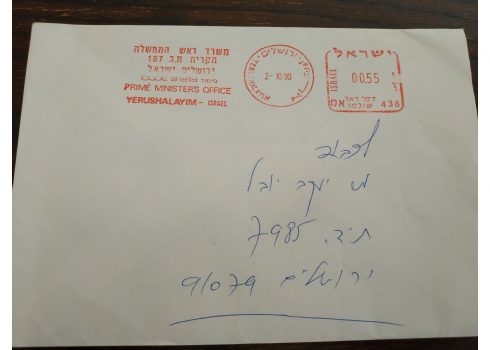 משרד ראש הממשלה
הקריה ת.ד 187
ירושלים ישראל
PRIME MINISTER'S OFFICE
YERUSHALAYIM - ISRAEL
ירושלים
YERUSHALAYIM
2-10.90
ישראל
ISRAEL
0055
דמי דאר
שולמו
436
לכבוד
מר יעקב יובל
ת.ד. 7985
ירושלים 91079